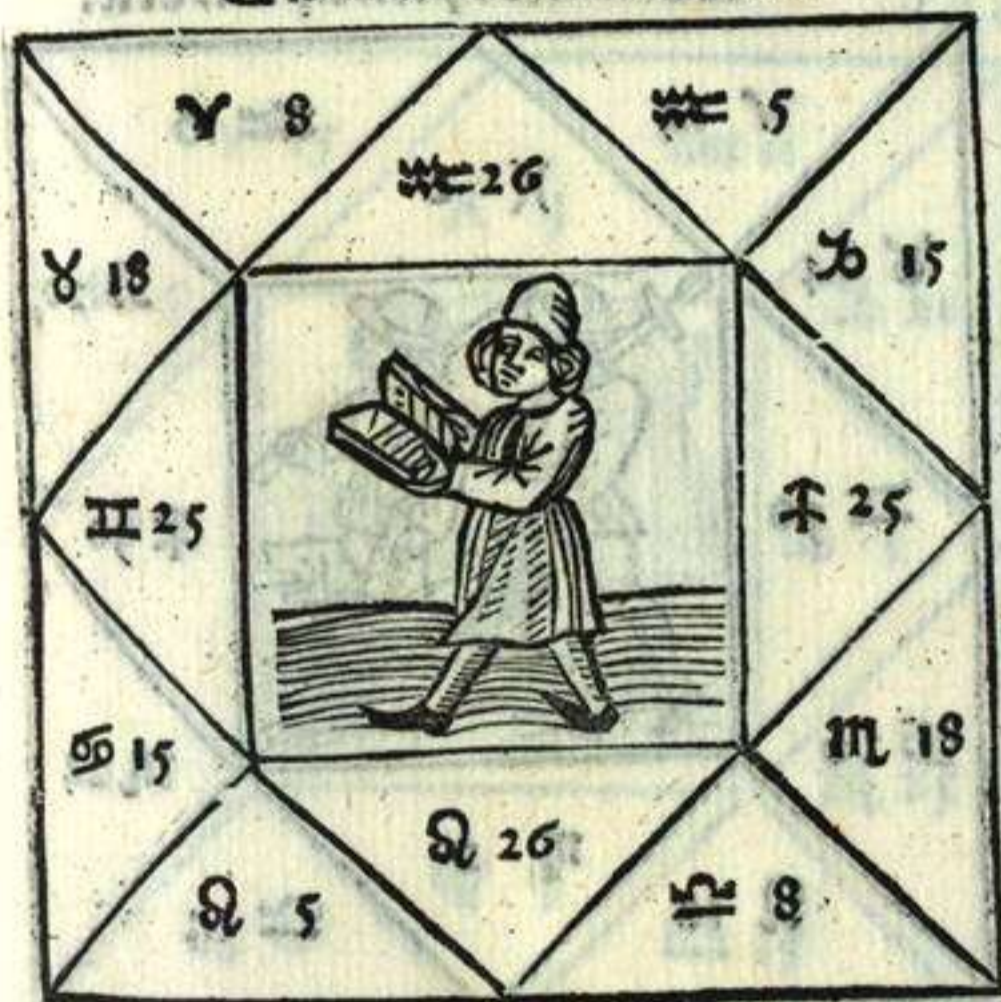 ♈ 8
♒ 5
♒ 26
♉ 18
♑ 15
♊ 25
♐ 25
♋ 15
♏ 18
♌ 26
♌ 5
♎ 8